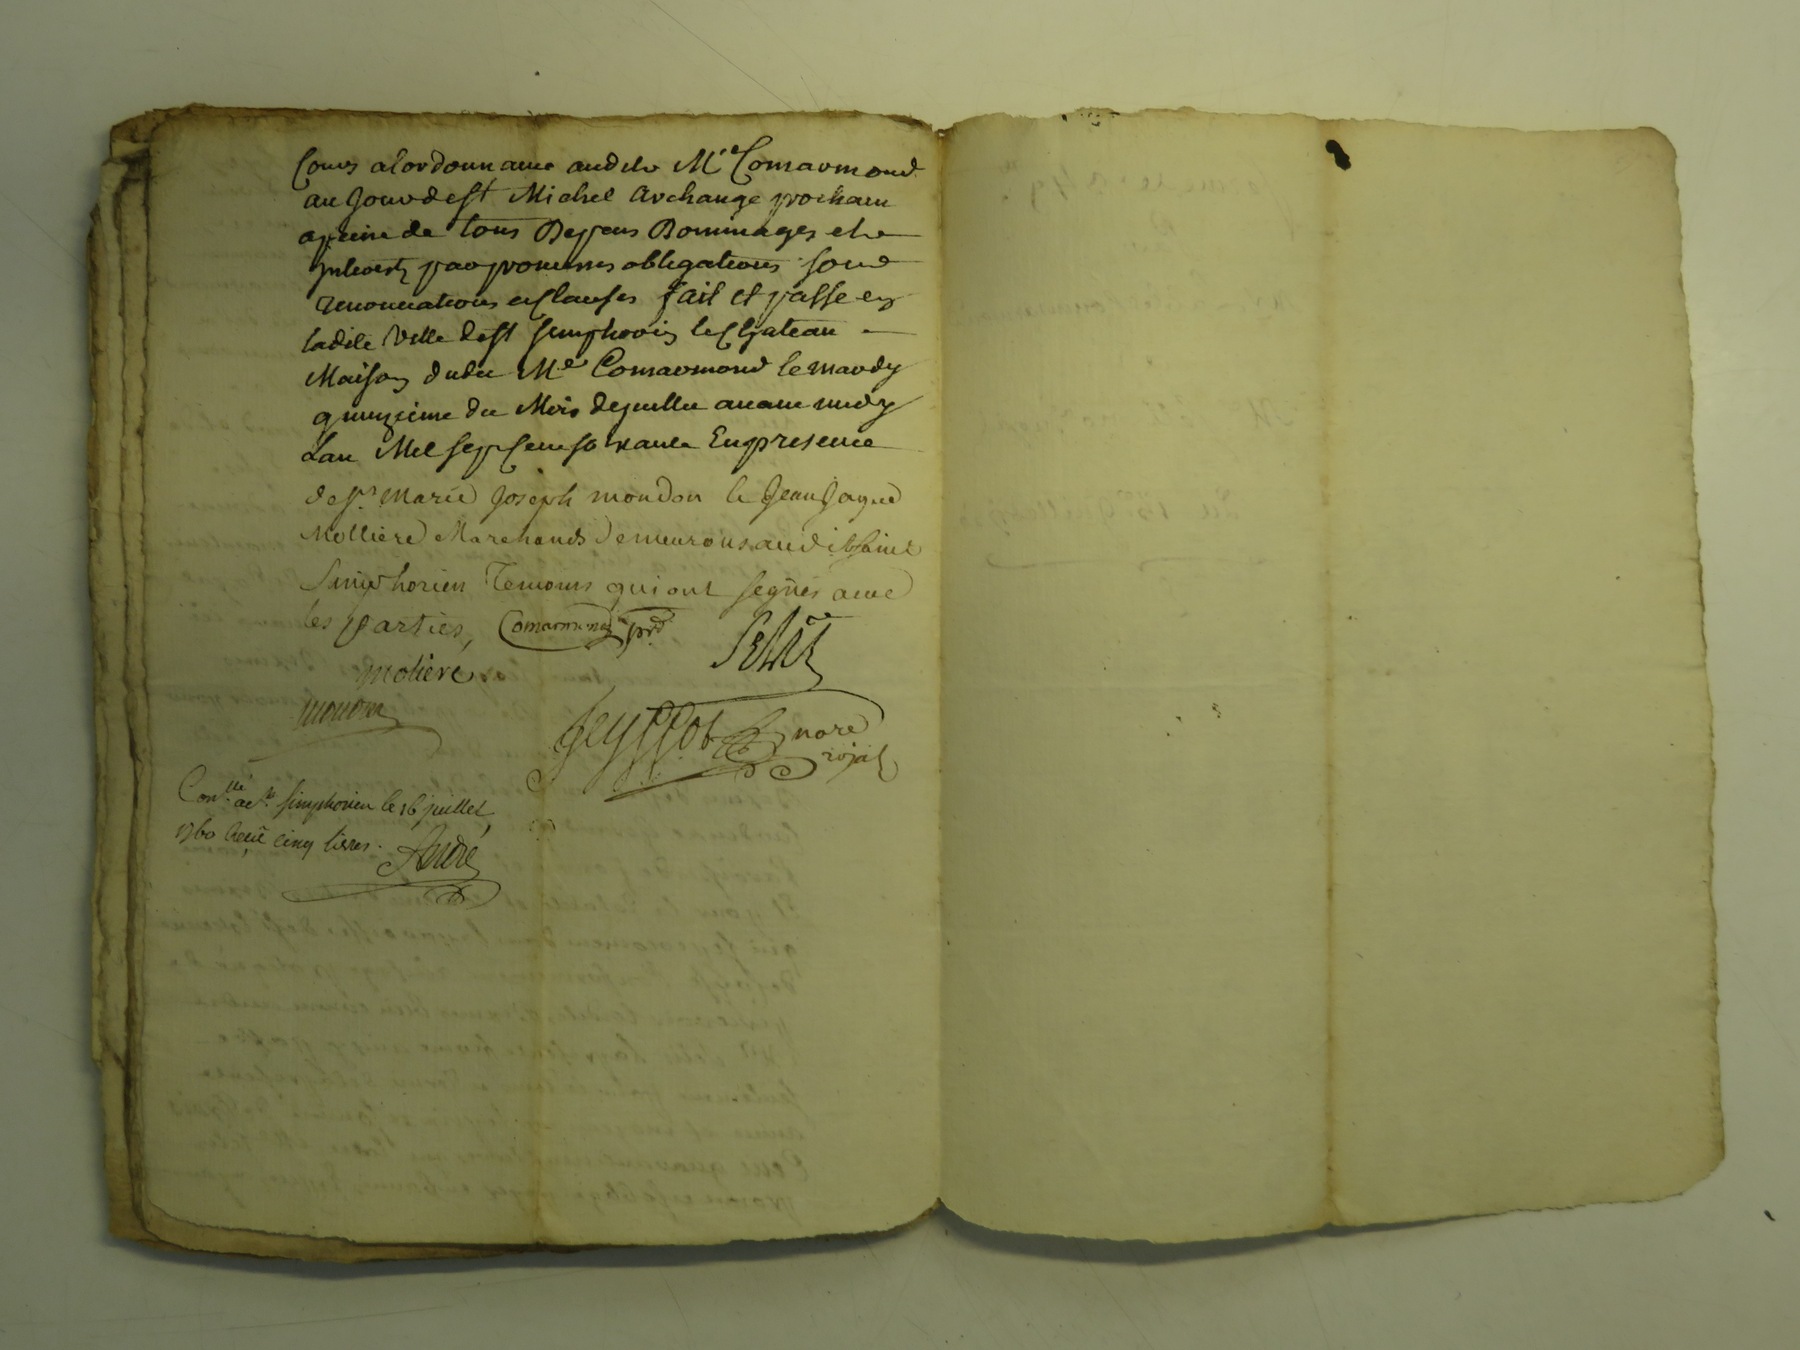 Cours alordonnance audit Me Comarmond
au Jour de st Michel Archange prochain
apeine de tous Depens Dommages et
Interests par promesses obligations soud
renonciations et Clauses fait et passé en
ladite Ville de st simphorien le Chateau
Maison dudit Me Comarmond le mardy
quinzieme du Mois dejuillet avant midy
Lan Mil sept Cens soixante En presence
de sr. Marie Joseph mondon & Jean Jaque
Molliere Marchands Demeurans audit saint
Simphorien Temoins qui ont segnés avec
les parties,
Comarmond
molière
mondon
Peyssot
nore
royal
Con.llé a St. simphorien le 16 juillet
1760 Reçu cinq livres.
André